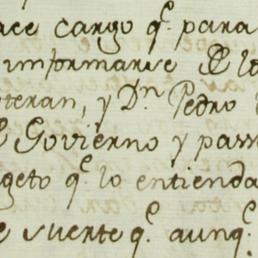 ace cargo q.^e para
informarse de lo
teran, y D.^n Pedro
Govierno y pass
geto q.^e lo entienda
e suerte q.^e aunq.^e